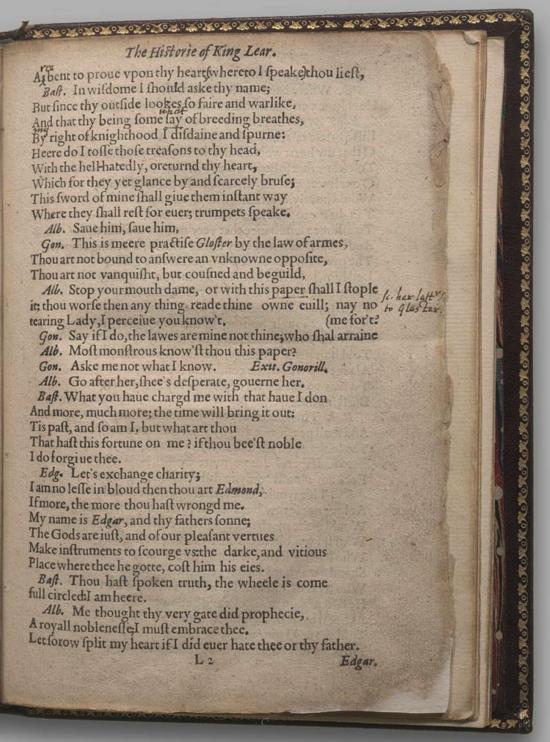 The Historie of King Lear.
As bent to proue vpon thy heart, whereto I speake, thou liest,
Bast. In wisdome I should aske thy name;
But since thy outside lookes so faire and warlike,
And that thy being some say of breeding breathes,
By right of knighthood I disdaine and spurne:
Heere do I tosse those treasons to thy head,
With the hell-hatedly, oreturnd thy heart,
Which for they yet glance by and scarcely bruse;
This sword of mine shall giue them instant way
Where they shall rest for euer; trumpets speake.
Alb. Saue him, saue him,
Gon. This is meere practise Gloster by the law of armes,
Thou art not bound to answere an vnknowne opposite,
Thou art not vanquisht, but cousned and beguild,
Alb. Stop your mouth dame, or with this paper shall I stople
it; thou worse then any thing reade thine owne euill; nay no
tearing Lady, I perceiue you know't. (me for't?
sc. her lett^r
to Gloster.
Gon. Say if I do, the lawes are mine not thine; who shal arraine
Alb. Most monstrous know'st thou this paper?
Gon. Aske me not what I know. Exit. Gonorill.
Alb. Go after her, shee's desperate, gouerne her.
Bast. What you haue chargd me with that haue I don
And more, much more; the time will bring it out:
Tis past, and so am I, but what art thou
That hast this fortune on me? if thou bee'st noble
I do forgiue thee.
Edg. Let's exchange charity;
I am no lesse in bloud then thou art Edmond,
If more, the more thou hast wrongd me.
My name is Edgar, and thy fathers sonne;
The Gods are iust, and of our pleasant vertues
Make instruments to scourge vs: the darke, and vitious
Place where thee he gotte, cost him his eies.
Bast. Thou hast spoken truth, the wheele is come
full circled I am heere.
Alb. Me thought thy very gate did prophecie,
A royall noblenesse, I must embrace thee.
Let sorow split my heart if I did euer hate thee or thy father.
L 2 Edgar.